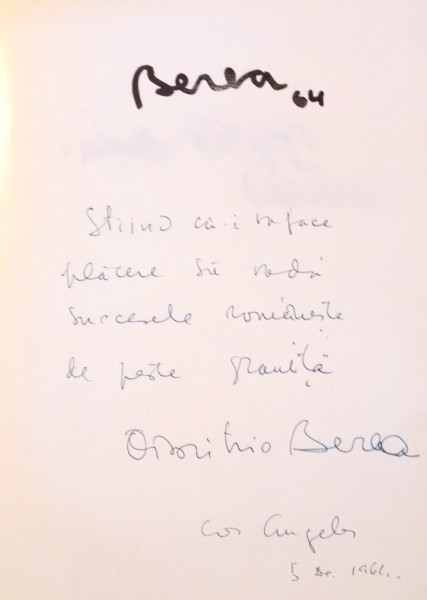 Berea 64
Stiind că-i va face
plăcere să vadă
succesele românești
de peste graniță
Dimitrie Berea
Los Angeles
5 De. 1964.